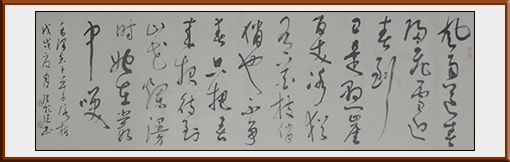 风雨送春
归飞雪迎
春到
已是悬崖
百丈冰犹
有花枝俏
俏也不争
春只把春
来报待到
山花烂漫
时她在丛
中笑
毛泽东卜算子咏梅
戊戌夏月 书